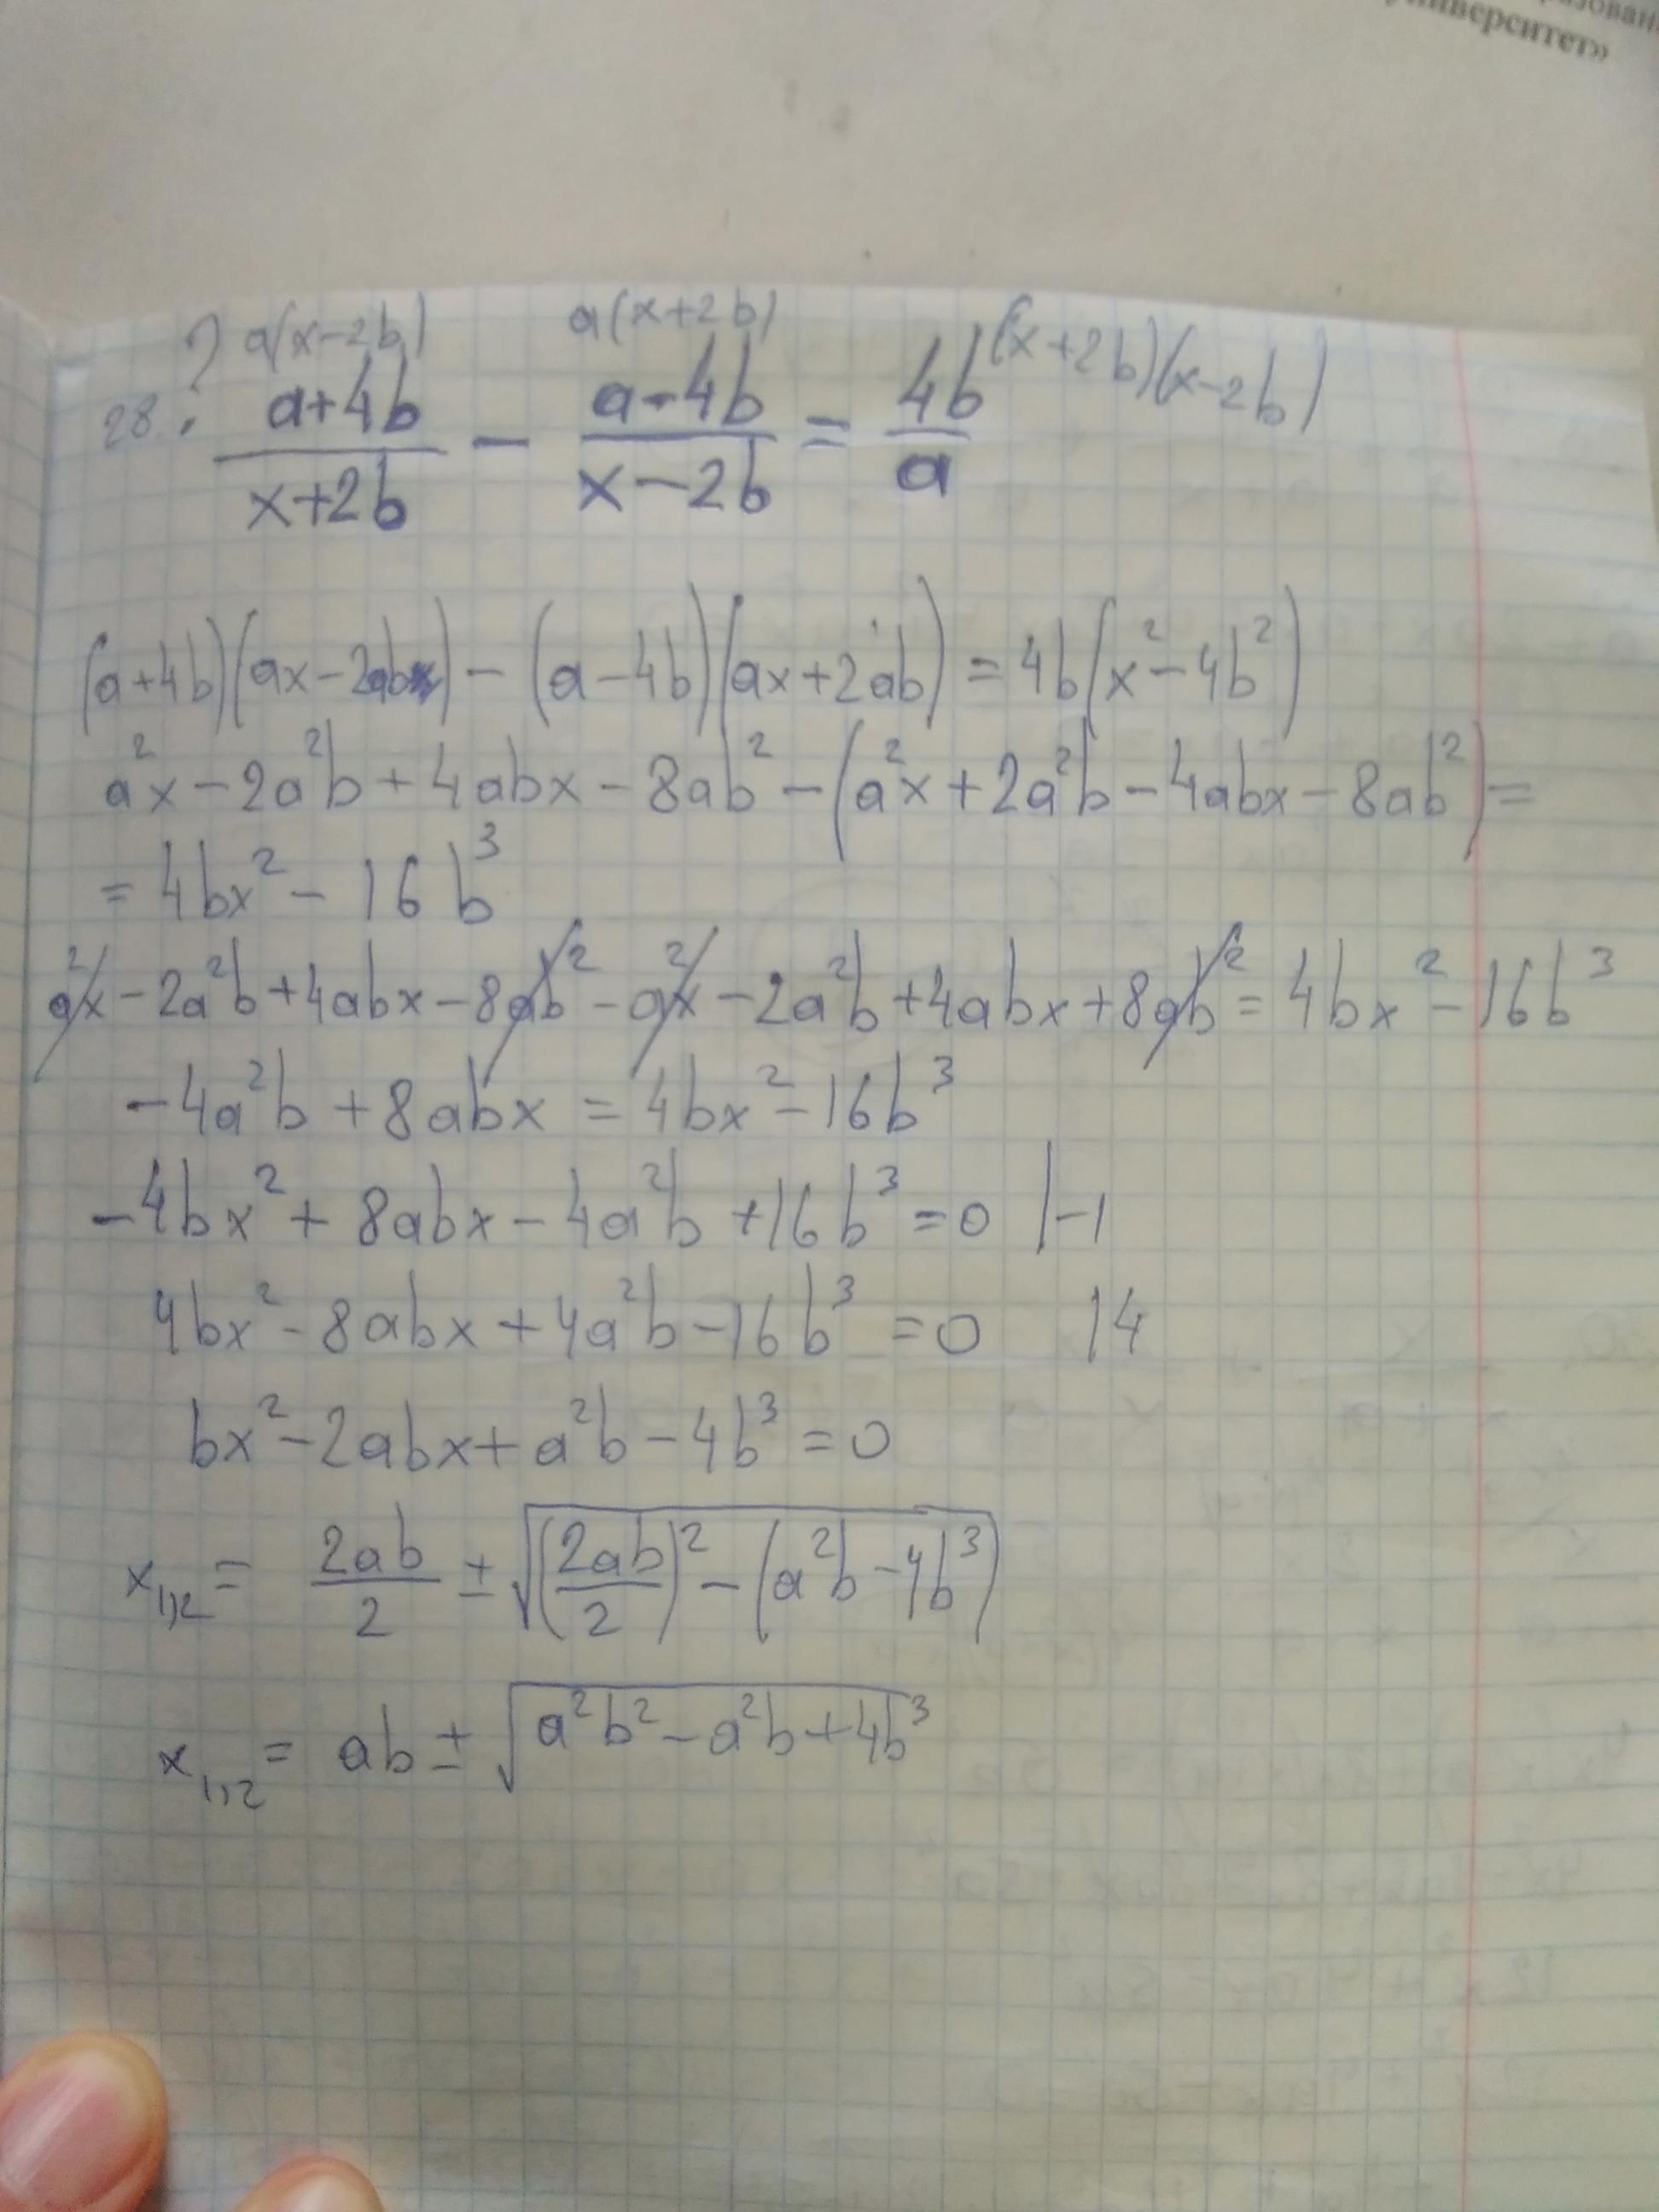 университет»
28. ? a(x-2b) a(x+2b) (x+2b)(x-2b)
a+4b / x+2b - a-4b / x-2b = 4b / a
(a+4b)(ax-2ab) - (a-4b)(ax+2ab) = 4b(x²-4b²)
a²x - 2a²b + 4abx - 8ab² - (a²x + 2a²b - 4abx - 8ab²) =
= 4bx² - 16b³
a²x - 2a²b + 4abx - 8ab² - a²x - 2a²b + 4abx + 8ab² = 4bx² - 16b³
-4a²b + 8abx = 4bx² - 16b³
-4bx² + 8abx - 4a²b + 16b³ = 0 |-1
4bx² - 8abx + 4a²b - 16b³ = 0 |4
bx² - 2abx + a²b - 4b³ = 0
x₁,₂ = 2ab/2 ± √((2ab/2)² - (a²b - 4b³))
x₁,₂ = ab ± √(a²b² - a²b + 4b³)